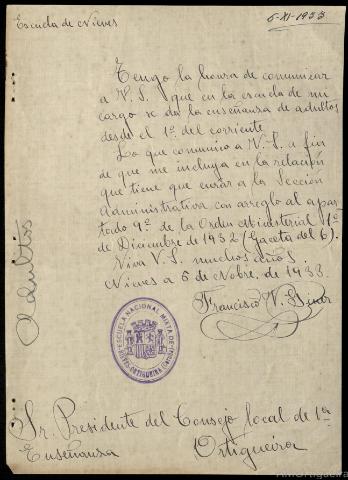 Escuela de Nieves
6-XI-1933
Tengo la honra de comunicar
a V. S. que en la escuela de mi
cargo se da la enseñanza de adultos
desde el 1º del corriente.
Lo que comunico a V. S. a fin
de que me incluya en la relación
que tiene que enviar a la Sección
Administrativa con arreglo al apar-
tado 9º de la Orden Ministerial 1º
de Diciembre de 1932 (Gaceta del 6).
Viva V. S. muchos años.
Nieves a 6 de Nobre. de 1933.
Francisco V.
Adultos
ESCUELA NACIONAL MIXTA DE
NIEVES-ORTIGUEIRA (Coruña)
Sr. Presidente del Consejo local de 1ª
Enseñanza Ortigueira